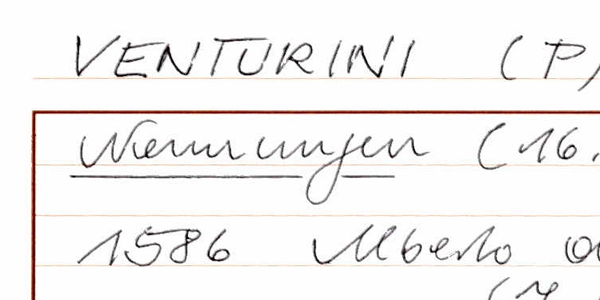 VENTURINI (P)
Nennungen (16.
1586 Alberto